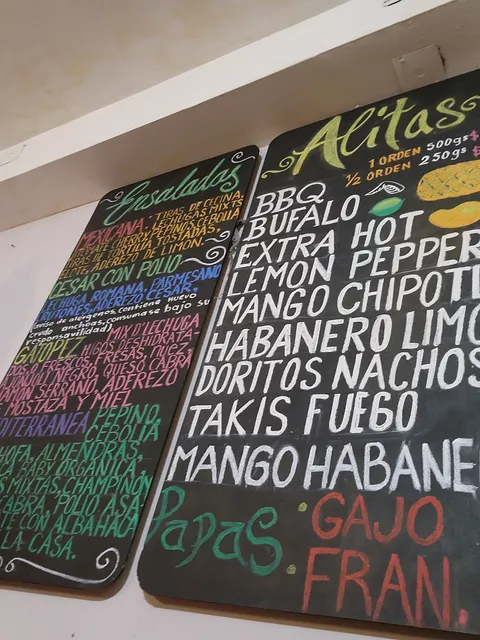 Ensaladas
MEXICANA: TIRAS DE COCINA,
LECHUGAS MIXTS
CHERRY, PEPINO, CEBOLLA
DE TORTILLA TOSTADAS,
ELOTE, ADEREZO DE LIMÓN.
CESAR CON POLLO
LECHUGA ROMANA, PARMESANO
CRUTONES, ADEREZO CESAR,
de alérgenos, contiene huevo
crudo anchoas, consumase bajo su
responsavilidad)
GATUPIZ HIGOS DESHIDRATA-
DOS O FRESCOS, FRESAS, NUEZ,
QUESO CABRA,
JAMÓN SERRANO, ADEREZO
DE MOSTAZA Y MIEL
DITERRANEA PEPINO,
CEBOLLA
HOFA, ALMENDRAS,
BABY ORGANICA,
MIXTAS, CHAMPIÑON
CABRA, POLLO ASA
TE CON ALBAHACA
LA CASA.
Alitas
1 ORDEN 500gs $
1/2 ORDEN 250gs
BBQ
BUFALO
EXTRA HOT
LEMON PEPPER
MANGO CHIPOTL
HABANERO LIMO
DORITOS NACHOS
TAKIS FUEGO
MANGO HABANE
Papas • GAJO
• FRAN.